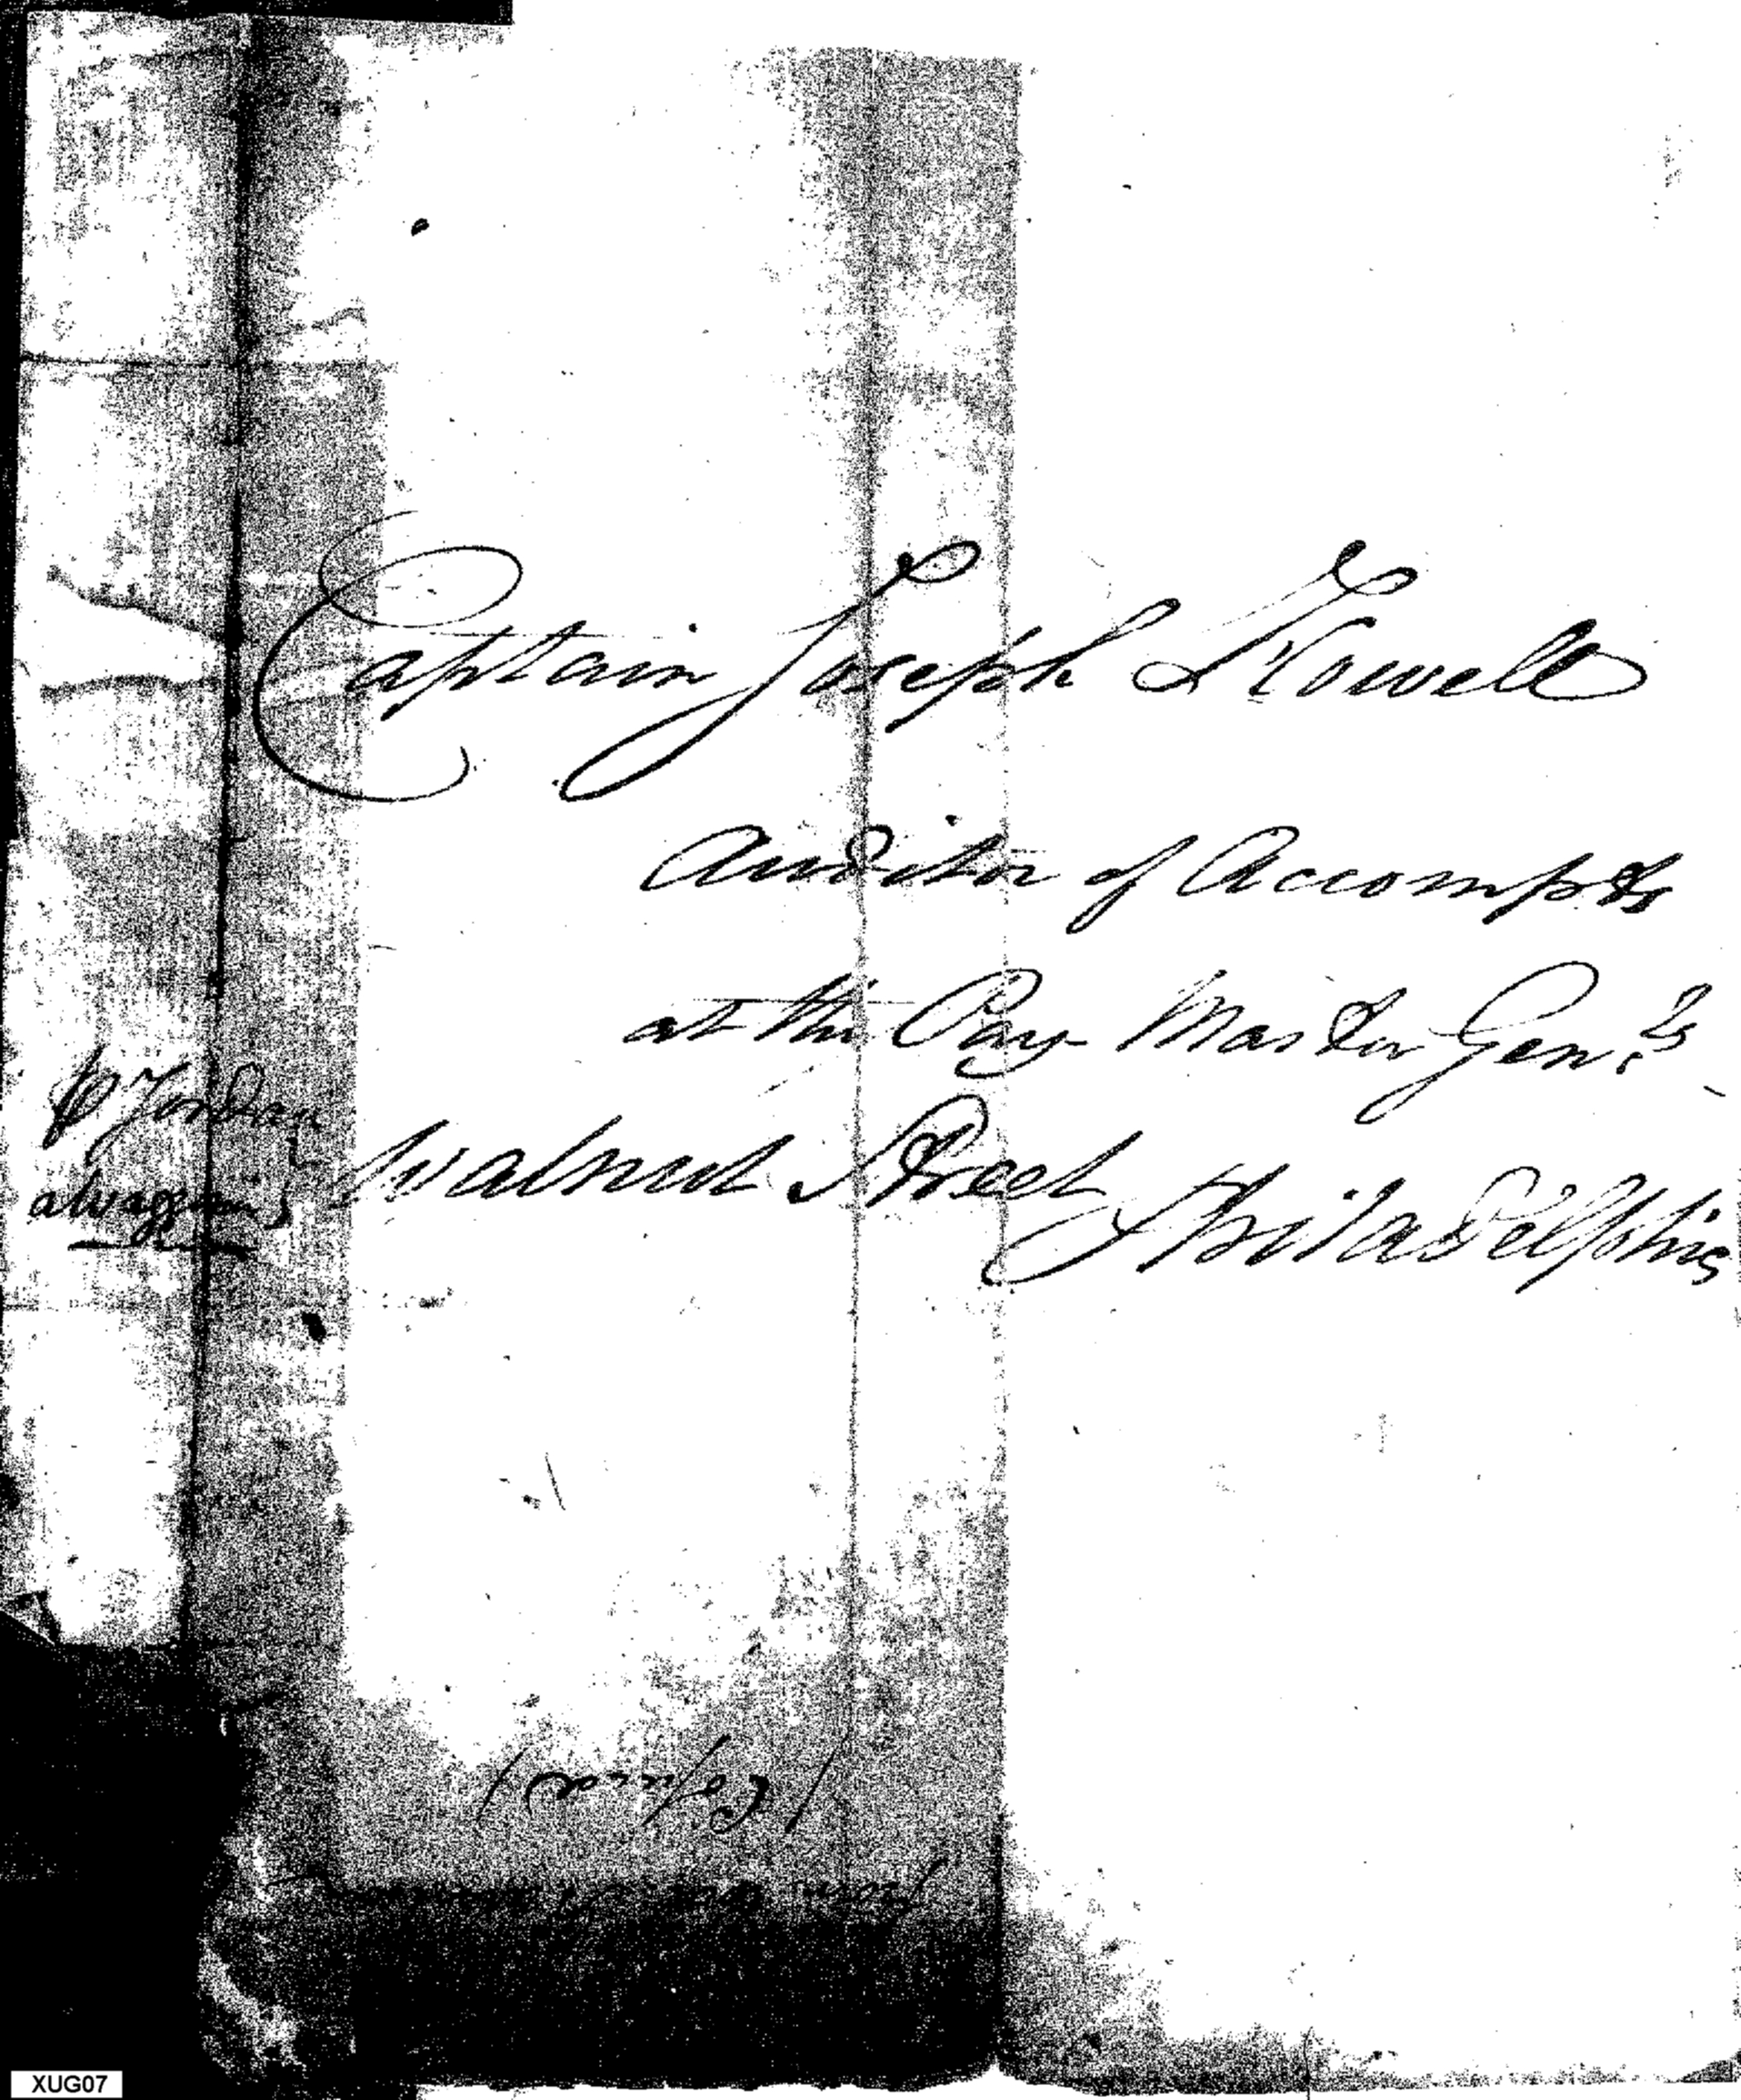 Captain Joseph Howell
Auditor of Accompts
at the Pay Master Gen.ls
Walnut Street Philadelphia
℔ Jordan
a Waggoner
(Copied)
XUG07